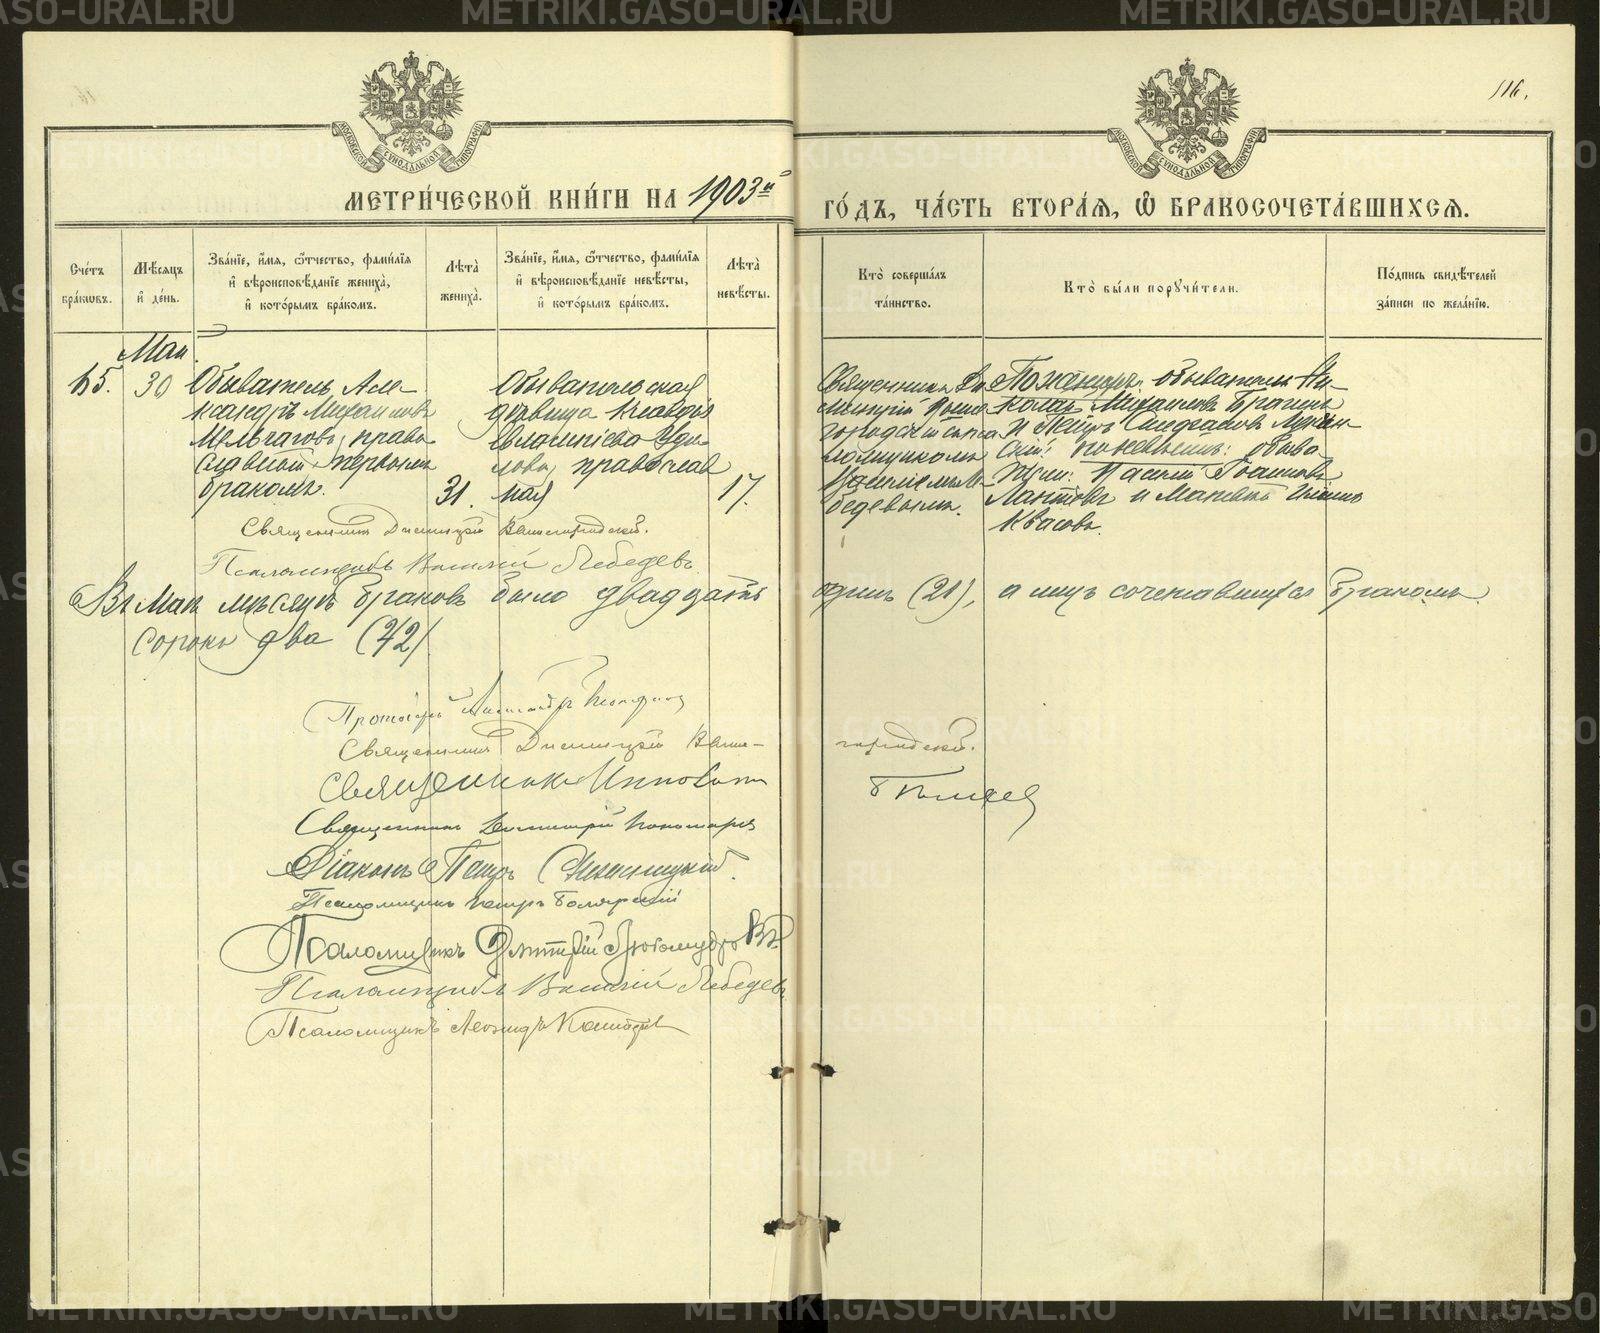 METRIKI.GASO-URAL.RU
116.
МОСКОВСКОЙ СѴНОДАЛЬНОЙ ТИПОГРАФІИ
МОСКОВСКОЙ СѴНОДАЛЬНОЙ ТИПОГРАФІИ
МЕТРИ́ЧЕСКОЙ КНИ́ГИ НА 1903й
ГО́ДЪ, ЧА́СТЬ ВТОРА́Я, Ѡ БРАКОСОЧЕТА́ВШИХСЯ.
Сче́тъ бра́ковъ.
Мѣ́сяцъ и҆ де́нь.
Зва́нїе, и҆́мя, ѻ҆́тчество, фами́лїя и҆ вѣроисповѣ́данїе жениха̀, и҆ кото́рымъ бра́комъ.
Лѣта̀ жениха̀.
Зва́нїе, и҆́мя, ѻ҆́тчество, фами́лїя и҆ вѣроисповѣ́данїе невѣ́сты, и҆ кото́рымъ бра́комъ.
Лѣта̀ невѣ́сты.
Кто̀ соверша́лъ та́инство.
Кто̀ бы́ли порꙋчи́тели.
По́дпись свидѣ́телей за́писи по жела́нїю.
Май.
65. 30
Обыватель Але-
ксандръ Михаиловъ
Мельчаговъ, право-
славный первымъ
бракомъ.
31.
Обывательская
дѣвица Клавдія
Евлампіева Уди-
лова, православ
ная
17.
Священникъ Ди
митрій Выше
городскій съ пса
ломщикомъ
Василіемъ Ле
бедевымъ.
По женихѣ: обыватели Ни-
колай Михаиловъ Брагинъ
и Петръ Стефановъ
по невѣстѣ: обыва-
тели:
Лаптевъ и
Квасовъ.
Священникъ Димитрій Вышегородскій.
Псаломщикъ Василій Лебедевъ
Въ Маѣ мѣсяцѣ браковъ было двадцать
одинъ (21), а лицъ сочетавшихся бракомъ
сорокъ два (42)
Протоіерей Александръ
Священникъ Димитрій Выше-
городскій.
Священникъ Иннокен
Священникъ Димитрій Пономаревъ
Діаконъ Петръ
Псаломщикъ Петръ Боярскій
Псаломщикъ Дмитрій Любомудровъ
Псаломщикъ Василій Лебедевъ
Псаломщикъ Леонидъ